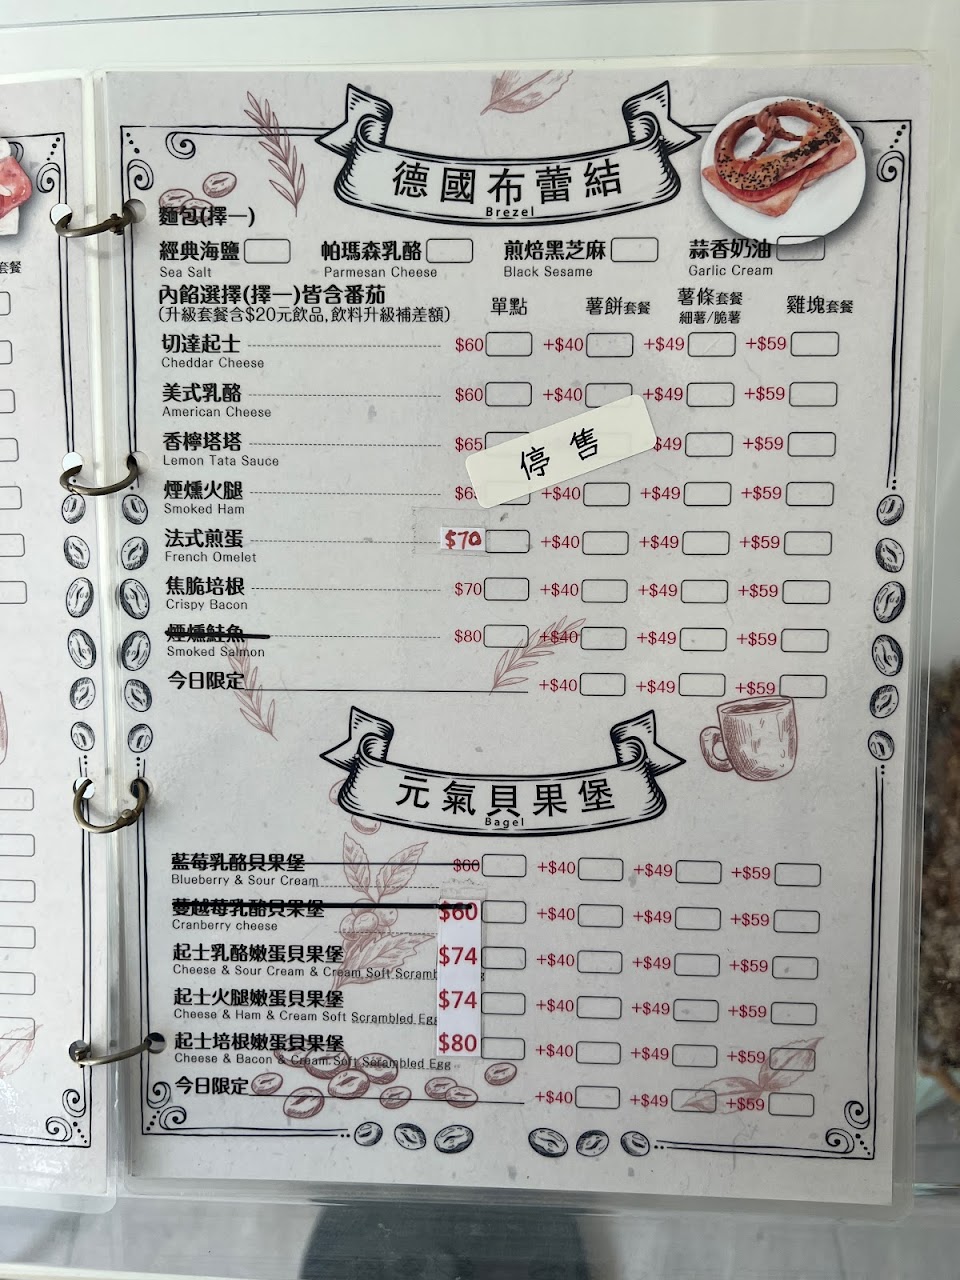 套餐
德國布蕾結
Brezel
麵包(擇一)
經典海鹽 帕瑪森乳酪 煎焙黑芝麻 蒜香奶油
Sea Salt Parmesan Cheese Black Sesame Garlic Cream
內餡選擇(擇一)皆含番茄 單點 薯餅套餐 薯條套餐 雞塊套餐
(升級套餐含$20元飲品,飲料升級補差額) 細薯/脆薯
切達起士 $60 +$40 +$49 +$59
Cheddar Cheese
美式乳酪 $60 +$40 +$49 +$59
American Cheese
香檸塔塔 $65 $49 +$59
Lemon Tata Sauce
停售
煙燻火腿 +$40 +$49 +$59
Smoked Ham
法式煎蛋 $70 +$40 +$49 +$59
French Omelet
焦脆培根 $70 +$40 +$49 +$59
Crispy Bacon
煙燻鮭魚 $80 +$40 +$49 +$59
Smoked Salmon
今日限定 +$40 +$49 +$59
元氣貝果堡
Bagel
藍莓乳酪貝果堡 $60 +$40 +$49 +$59
Blueberry & Sour Cream
蔓越莓乳酪貝果堡 $60 +$40 +$49 +$59
Cranberry cheese
起士乳酪嫩蛋貝果堡 $74 +$40 +$49 +$59
Cheese & Sour Cream & Cream Soft
起士火腿嫩蛋貝果堡 $74 +$40 +$49 +$59
Cheese & Ham & Cream Soft Scrambled
起士培根嫩蛋貝果堡 $80 +$40 +$49 +$59
Cheese & Bacon & Cream Soft Scrambled Egg
今日限定 +$40 +$49 +$59